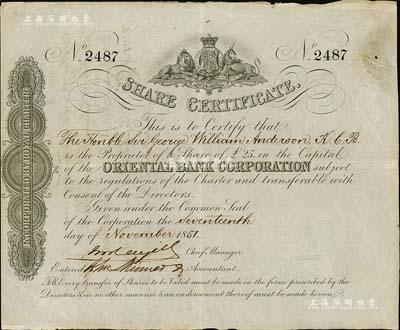 上海陽明拍賣
No. 2487
No. 2487
SHARE CERTIFICATE.
This is to Certify that
The Honble Sir George William Anderson, K.C.B.
is the Proprietor of 1 Share of £25 in the Capital
of the ORIENTAL BANK CORPORATION subject
to the regulations of the Charter and transferable with
Consent of the Directors.
Given under the Common Seal
of the Corporation the Seventeenth
day of November 1851.
Chief Manager
Entered Accountant
N.B. Every transfer of Shares to be Valid must be made in the form prescribed by the
Directors & in no other manner & no endorsement thereof must be made hereon
INCORPORATED BY ROYAL CHARTER